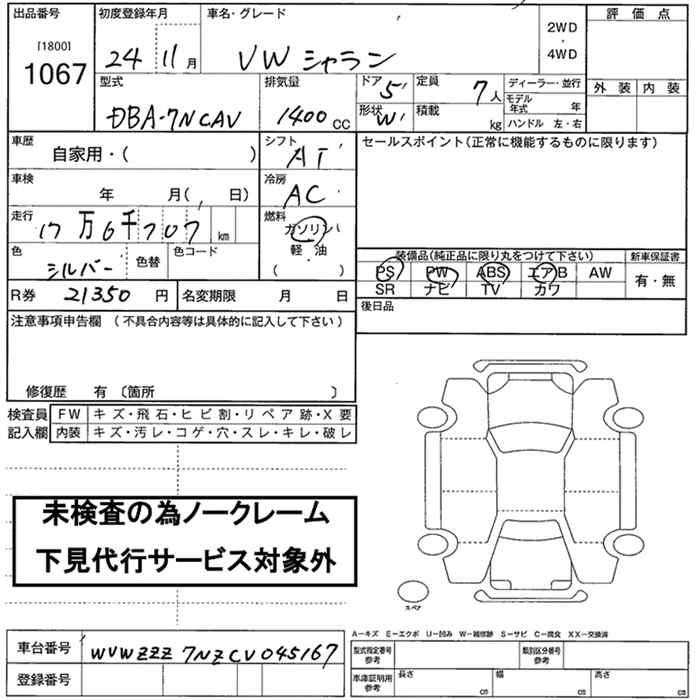 出品番号 初度登録年月 車名・グレード 2WD・4WD 評価点
[1800]
1067 24 11月 VW シャラン
型式 排気量 ドア 5 定員 7人 ディーラー・並行 外装 内装
DBA-7NCAV 1400cc 形状 W 積載 kg モデル年式 年
ハンドル 左・右
車歴 シフト セールスポイント(正常に機能するものに限ります)
自家用・( ) AT
車検 冷房
年 月( 日) AC
走行 燃料
17万6千707km ガソリン
色 色替 色コード 軽・油
シルバー ( ・ )
装備品(純正品に限り丸をつけて下さい) 新車保証書
PS PW ABS エアB AW 有・無
SR ナビ TV カワ
R券 21350 円 名変期限 月 日
後日品
注意事項申告欄 (不具合内容等は具体的に記入して下さい)
修復歴 有 〔箇所 〕
検査員 FW キズ・飛石・ヒビ割・リペア跡・X要
記入欄 内装 キズ・汚レ・コゲ・穴・スレ・キレ・破レ
未検査の為ノークレーム
下見代行サービス対象外
スペア
A−キズ E−エクボ U−凹み W−補修跡 S−サビ C−腐食 XX−交換済
車台番号 WVWZZZ7NZCV045167 型式指定番号 参考 類別区分番号 参考
登録番号 車庫証明用 参考 長さ cm 幅 cm 高さ cm